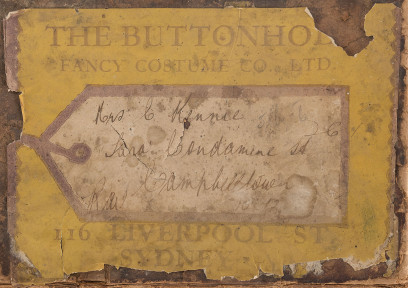 THE BUTTONHOL
FANCY COSTUME CO., LTD.
Mrs C Kinnie
Condamine St
Campbelltown
116 LIVERPOOL ST
SYDNEY